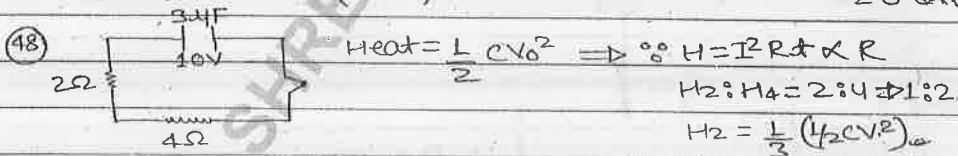 (48)
3μF
10V
2Ω
4Ω
Heat = 1/2 CV₀² ⇒ ∵ H = I²Rt ∝ R
H₂ : H₄ = 2 : 4 ⇒ 1 : 2
H₂ = 1/3 (1/2 CV²)
SHRE